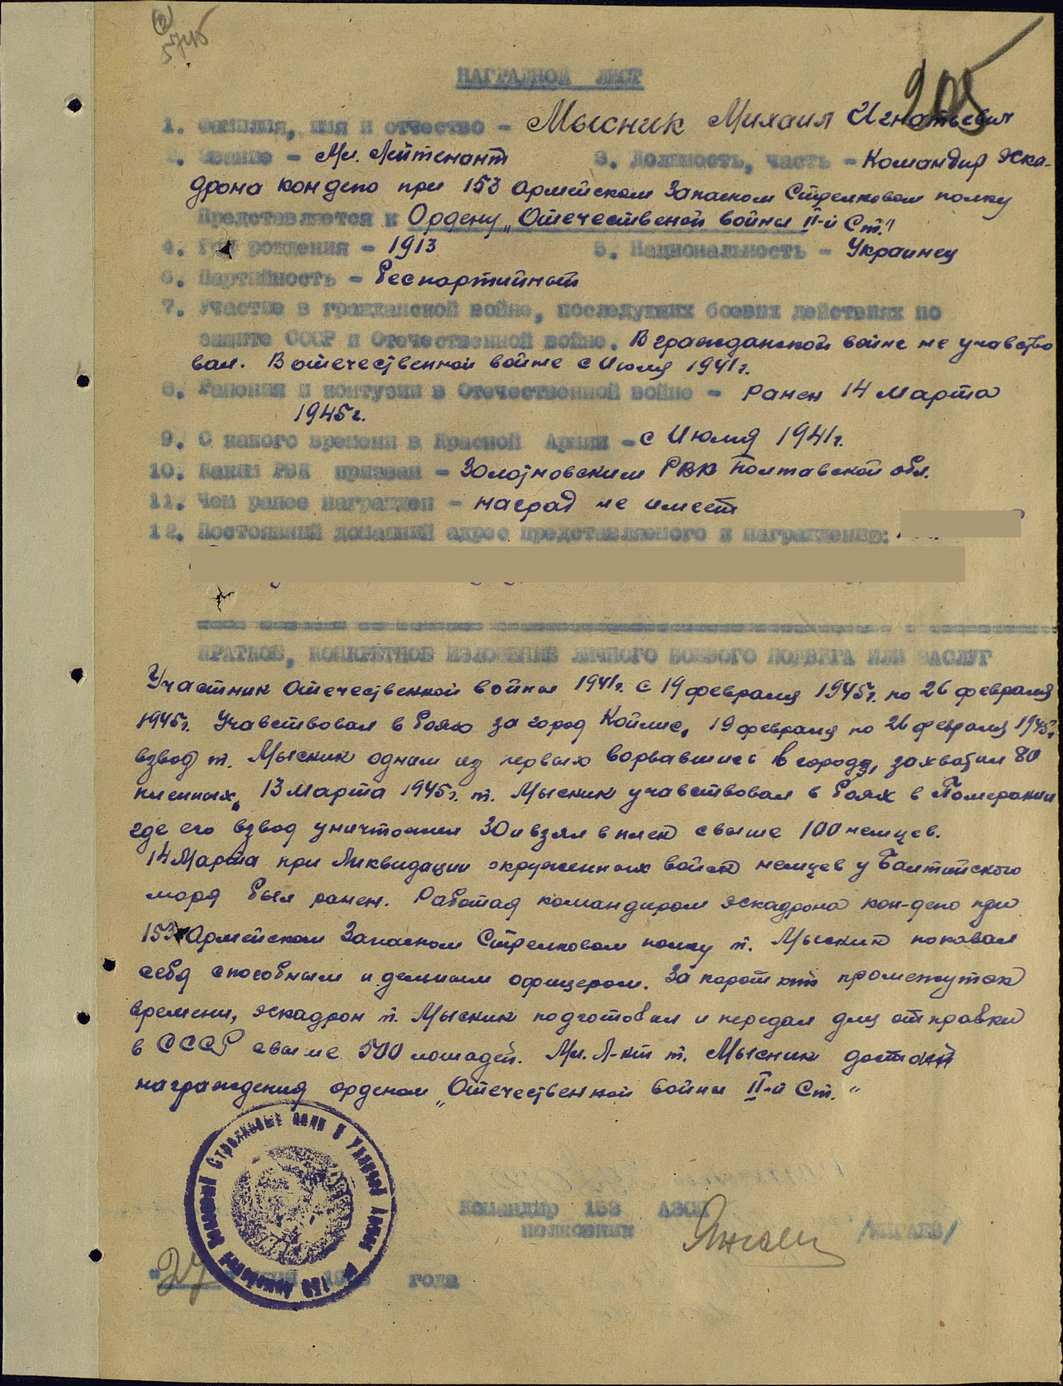 205
НАГРАДНОЙ ЛИСТ
1. Фамилия, имя и отчество – Мысник Михаил Игнатьевич
2. Звание – Мл. Лейтенант 3. Должность, часть – Командир эска-
дрона кондепо при 153 Армейском Запасном Стрелковом полку
Представляется к Ордену „Отечественой войны II-й Ст."
4. Год рождения – 1913 5. Национальность – Украинец
6. Партийность – Беспартийный
7. Участие в гражданской войне, последующих боевых действиях по
защите СССР и Отечественной войне. В гражданской войне не учавство
вал. В отечественной войне с Июля 1941 г.
8. Ранения и контузии в Отечественной войне – Ранен 14 Марта
1945 г.
9. С какого времени в Красной Армии – с Июля 1941 г.
10. Каким РВК призван – Золотновским РВК Полтавской обл.
11. Чем ранее награжден – наград не имеет
12. Постоянный домашний адрес представляемого к награждению:
КРАТКОЕ, КОНКРЕТНОЕ ИЗЛОЖЕНИЕ ЛИЧНОГО БОЕВОГО ПОДВИГА ИЛИ ЗАСЛУГ
Участник Отечественной войны 1941 г. С 19 февраля 1945 г. по 26 февраля
1945 г. Учавствовал в боях за город 19 февраля по 26 февраля 1945 г.
взвод т. Мысник одним из первых ворвавшись в город, захватил 80
пленных, 13 марта 1945 г. т. Мысник учавствовал в боях в Померании
где его взвод уничтожил 30 и взял в плен свыше 100 немцев.
14 Марта при Ликвидации окруженных войск немцев у Балтийского
моря был ранен. Работая командиром эскадрона кон-депо при
153 Армейском Запасном Стрелковом полку т. Мысник показал
себя способным и дельным офицером. За короткий промежуток
времени, эскадрон т. Мысник подготовил и передал для отправки
в СССР свыше 500 лошадей. Мл. Л-нт т. Мысник достоин
награждения орденом „Отечественной войны II-й Ст."
Командир 153 АЗСП
полковник /ЖИГАЛЕВ/
"27" 1945 года